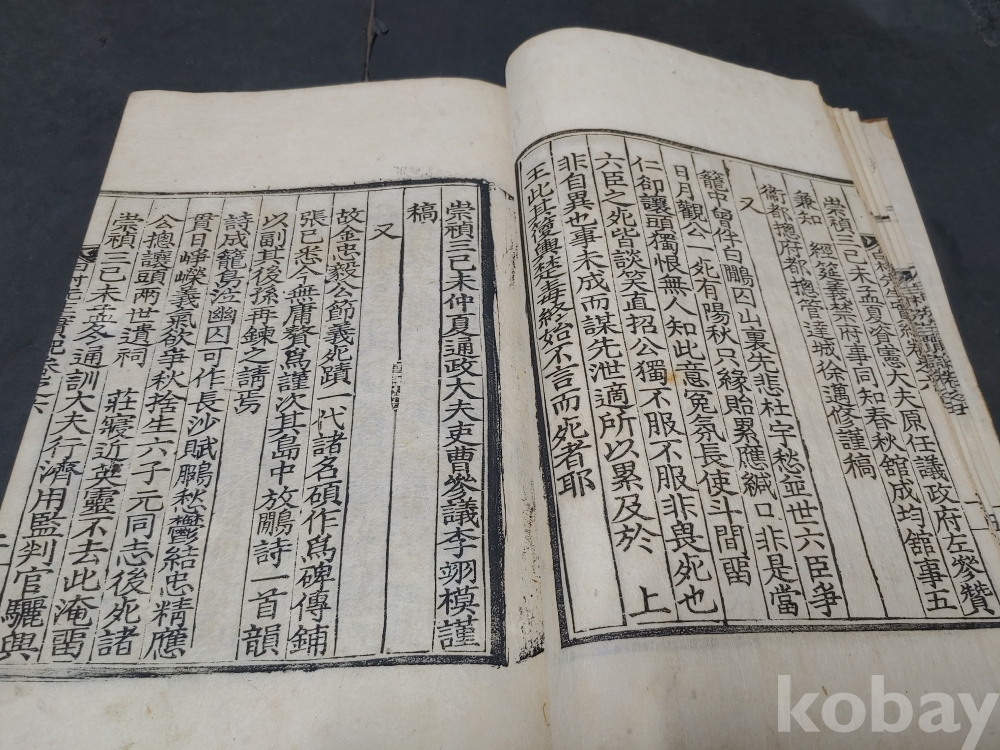 崇禎三己未孟夏資憲大夫原任議政府左參贊
兼知 經筵義禁府事同知春秋館成均館事五
衛都摠府都摠管達城徐邁修謹稿
又
籠中曾伴白鷳囚山裏先悲杜宇愁並世六臣爭
日月觀公一死有陽秋只緣貽累應緘口非是當
仁卻讓頭獨恨無人知此意冤氛長使斗間留
六臣之死皆談笑直招公獨不服不服非畏死也
非自異也事未成而謀先泄適所以累及於 上
王此其後輿楚毒終始不言而死者耶
崇禎三己未仲夏通政大夫吏曹參議李翊模謹
稿
又
故金忠毅公節義死蹟一代諸名碩作爲碑傳鋪
張已悉今無庸贅爲謹次其島中放鷳詩一首韻
以副其後孫再鍊之請焉
詩成籠鳥泣幽囚可作長沙賦鵩愁鬱結忠精應
貫日崢嶸義氣欲爭秋捨生六子元同志後死諸
公摠讓頭兩世遺祠 莊寢近英靈不去此淹留
崇禎三己未孟冬通訓大夫行濟用監判官驪興
kobay